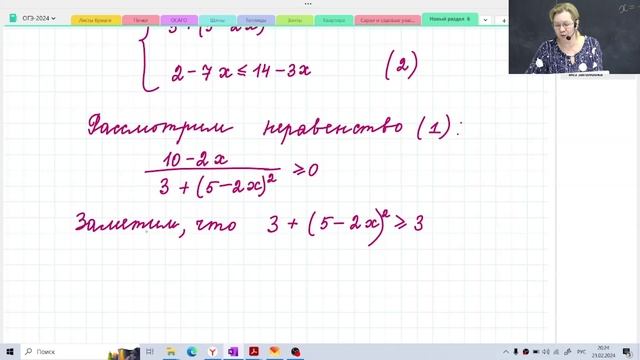 ОГЭ-2024
Листы бумаги
Печки
ОСАГО
Шины
Теплицы
Зонты
Квартира
Новый раздел 6
x=
3+(5-2x)
2-7x≤14-3x (2)
Рассмотрим неравенство (1):
10-2x
3+(5-2x)² ≥0
Заметим, что 3+(5-2x)²≥3
Поиск
РУС
20:24
23.02.2024